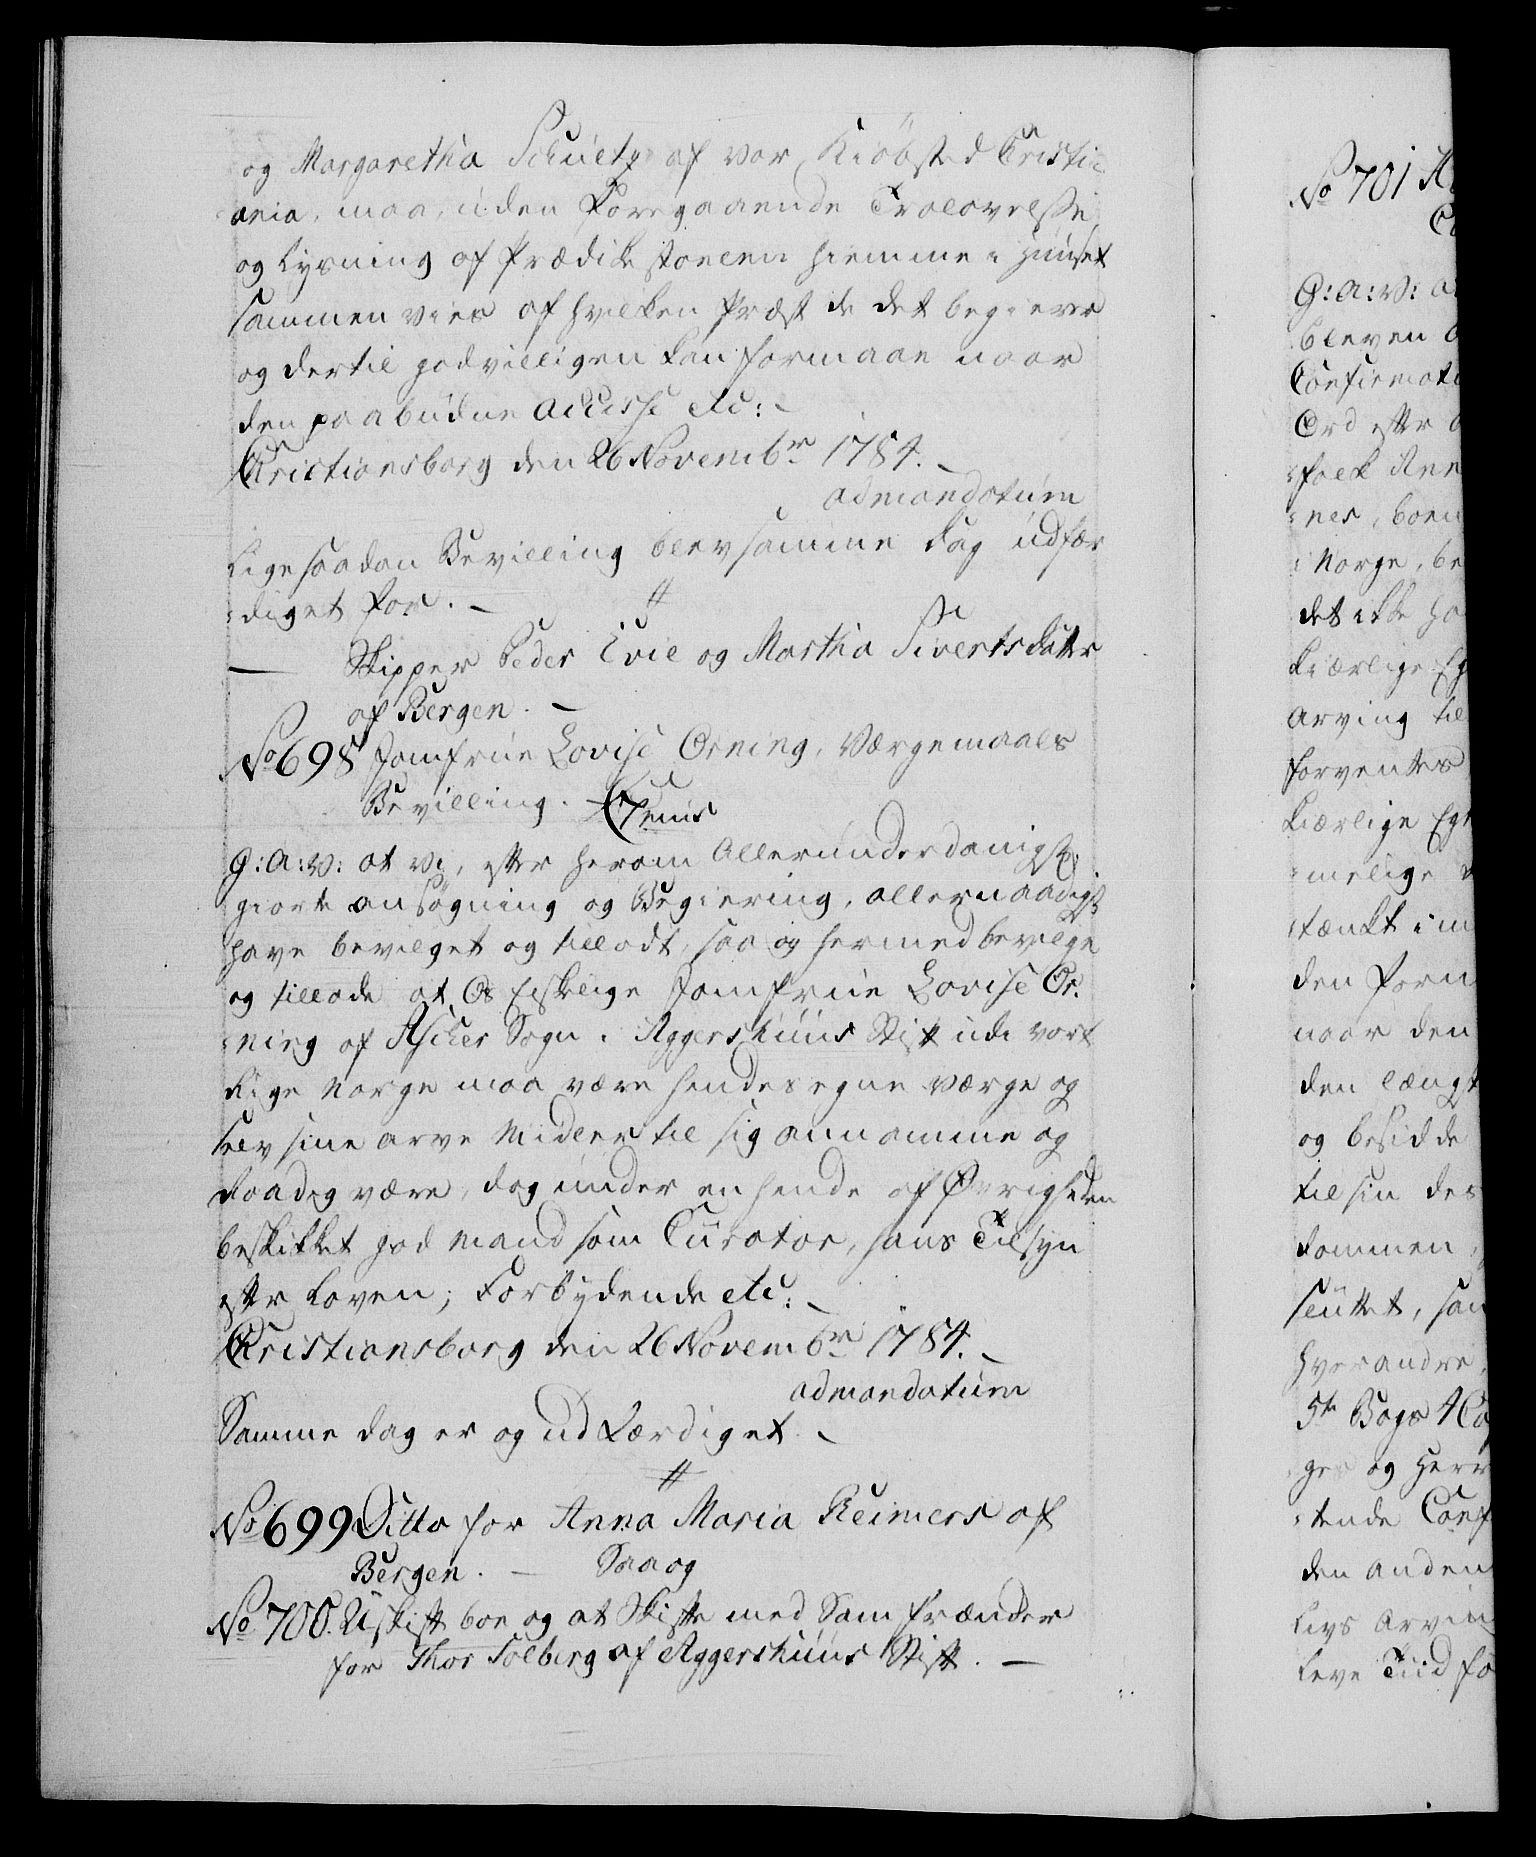 og Margaretha Schultz af vor Kiöbsted Cristi-
ania, maa, uden Foregaaende Trolovelse
og Lysning af Prædikestolen hiemme i Huuset
sammen vies af hvilken Præst de det begierer
og dertil godvilligen kan formaae naar
den paabudne Accisse etc: -
Christiansborg den 26 Novembr 1784. -
ad mandatum
Ligesaadan Bevilling blev samme Dag udfær
diget for. -
Skipper Peder Evie og Martha Sivertsdatter
af Bergen. -
No 698 Jomfrue Lovise Orning, Værgemaals
Bevilling. C7mus
G: A: V: at Vi, efter herom Allerunderdanigst
giorte ansøgning og Begiering, allernaadigst
have bevilget og tilladt, saa og hermed bevilge
og tillade at Os Elskelige Jomfrue Lovise Or-
ning af Asker Sogn i Aggershuus Stift udi vort
Rige Norge maa være hendes egne Værge og
selv sine arve Midler til sig annamme og
Raadig være, dog under en hende af Øvrigheden
beskikket god Mand som Curator, hans Tilsyn
efter Loven; Forbydende etc: -
Christiansborg den 26 Novembr 1784. -
ad mandatum
Samme Dag er og udfærdiget -
No 699 Ditto for Anna Maria Reimers af
Bergen. - Saa og
No 700. Uskift boe og at Skifte med Samfrænder
for Thor Solberg af Aggershuus Stift. -
No 701
G: A: V:
bleven
Confirmati
Ord efter
folk
nes, boen
Norge, be
det ikke ha
kiærlige Eg
Arving til
forventes
kiærlige Egt
melige
tænkt i m
den Form
naar den
den længst
og besidde
til sin des
dommen,
sluttet, saa
hverandre,
5te Bogs 4 Cap
ger og Herr
tende Conf
den anden
Livs Arving
leve Tiid fo